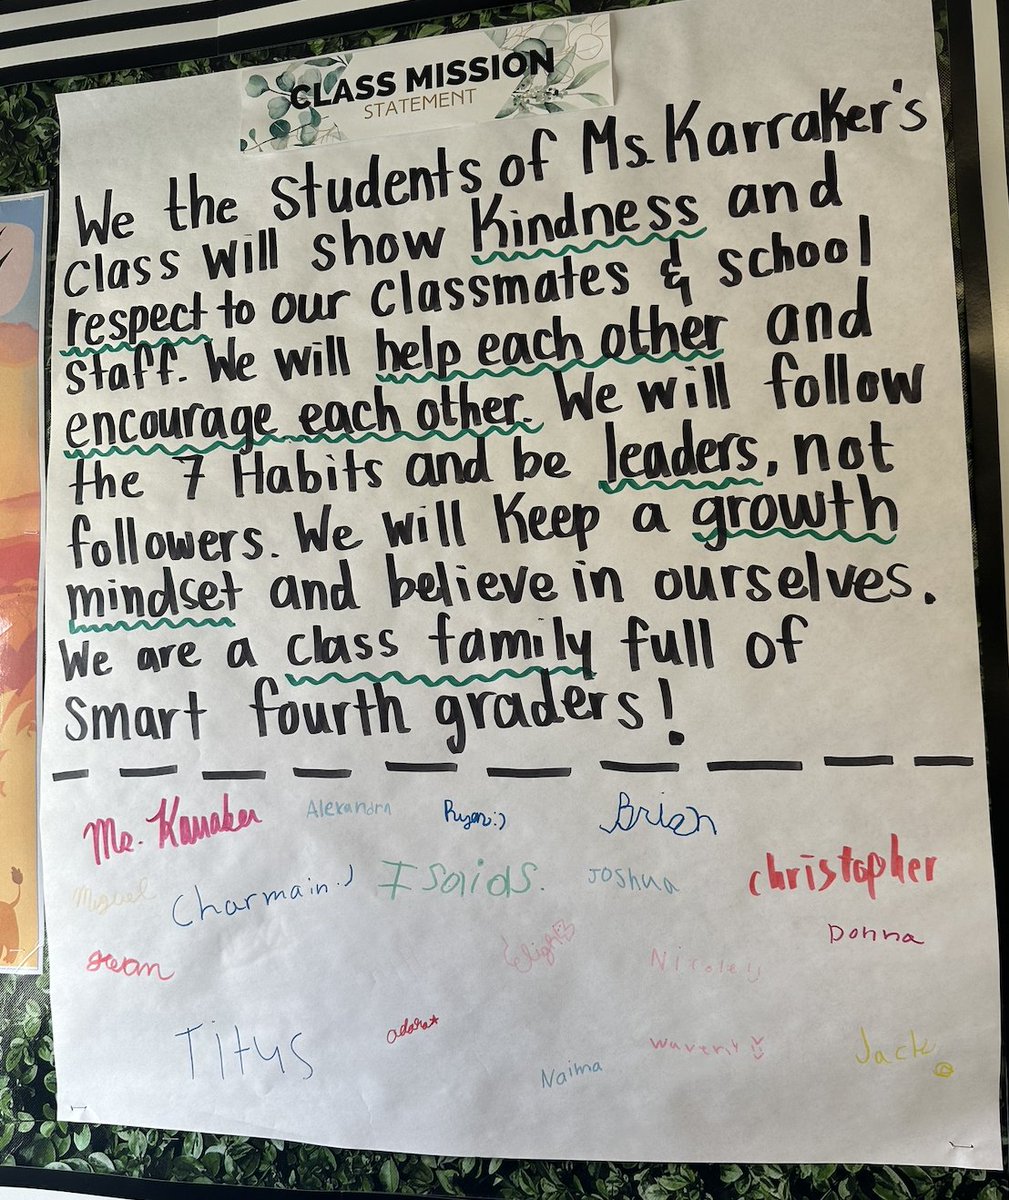 CLASS MISSION
STATEMENT
We the students of Ms. Karraker's
class will show Kindness and
respect to our classmates & school
staff. We will help each other and
encourage each other. We will follow
the 7 Habits and be leaders, not
followers. We will Keep a growth
mindset and believe in ourselves.
We are a class family full of
smart fourth graders!
Ms. Karraker Alexandra Ryan:) Brian
Miguel Charmain:) Joshua christopher
Donna
Titus adora
Naima Waverly Jack